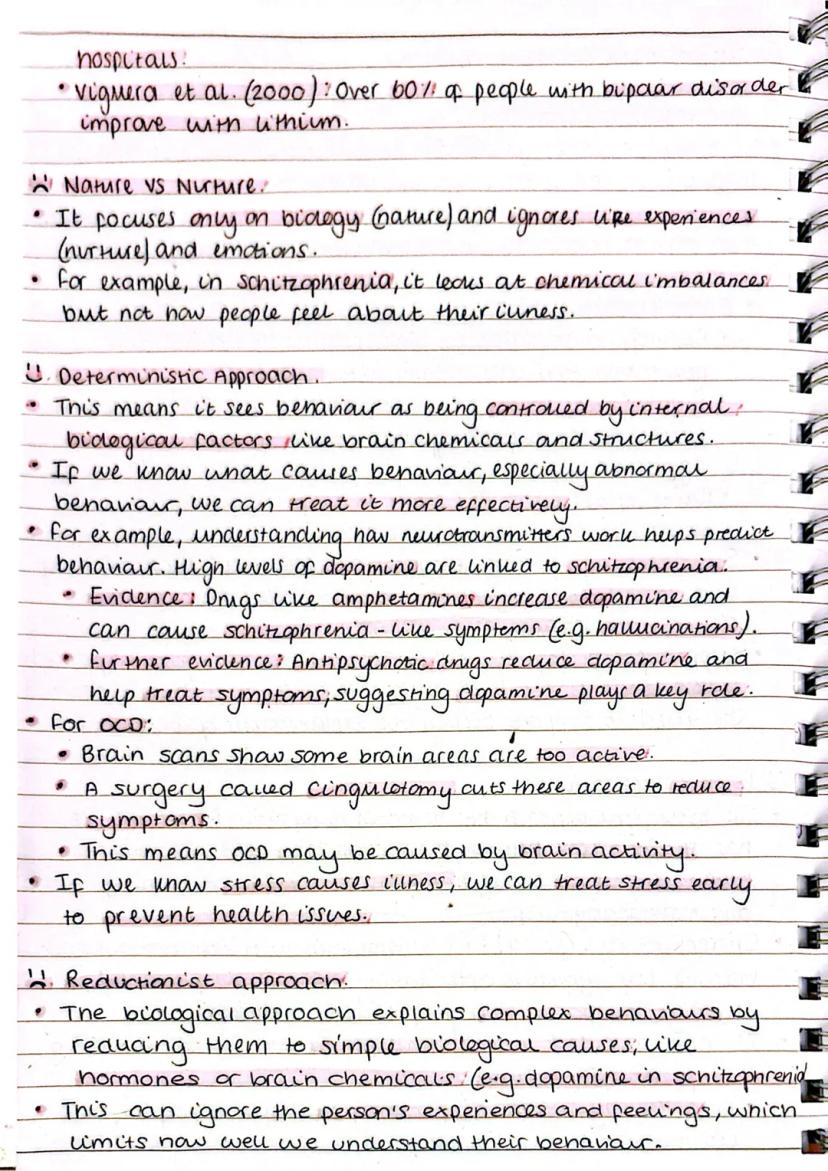 hospitals.
• Viguera et al. (2000): Over 60% of people with bipolar disorder
improve with lithium.
Nature vs Nurture.
• It focuses only on biology (nature) and ignores life experiences
(nurture) and emotions.
• For example, in schizophrenia, it looks at chemical imbalances
but not how people feel about their illness.
Deterministic Approach.
• This means it sees behaviour as being controlled by internal
biological factors like brain chemicals and structures.
• If we know what causes behaviour, especially abnormal
behaviour, we can treat it more effectively.
• For example, understanding how neurotransmitters work helps predict
behaviour. High levels of dopamine are linked to schizophrenia.
• Evidence: Drugs like amphetamines increase dopamine and
can cause schizophrenia-like symptoms (e.g. hallucinations).
• Further evidence: Antipsychotic drugs reduce dopamine and
help treat symptoms, suggesting dopamine plays a key role.
• For OCD:
• Brain scans show some brain areas are too active.
• A surgery called Cingulotomy cuts these areas to reduce
symptoms.
• This means OCD may be caused by brain activity.
• If we know stress causes illness, we can treat stress early
to prevent health issues.
Reductionist approach.
• The biological approach explains complex behaviours by
reducing them to simple biological causes, like
hormones or brain chemicals. (e.g. dopamine in schizophrenia
• This can ignore the person's experiences and feelings, which
limits how well we understand their behaviour.